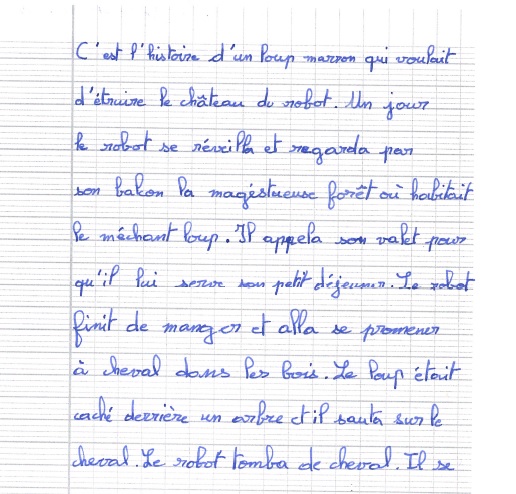 C'est l'histoire d'un loup marron qui voulait
d'étruire le château du robot. Un jour
le robot se réveilla et regarda par
son balcon la magéstueuse forêt où habitait
le méchant loup. Il appela son valet pour
qu'il lui serve son petit déjeuner. Le robot
finit de manger et alla se promener
à cheval dans les bois. Le loup était
caché derrière un arbre et il sauta sur le
cheval. Le robot tomba de cheval. Il se